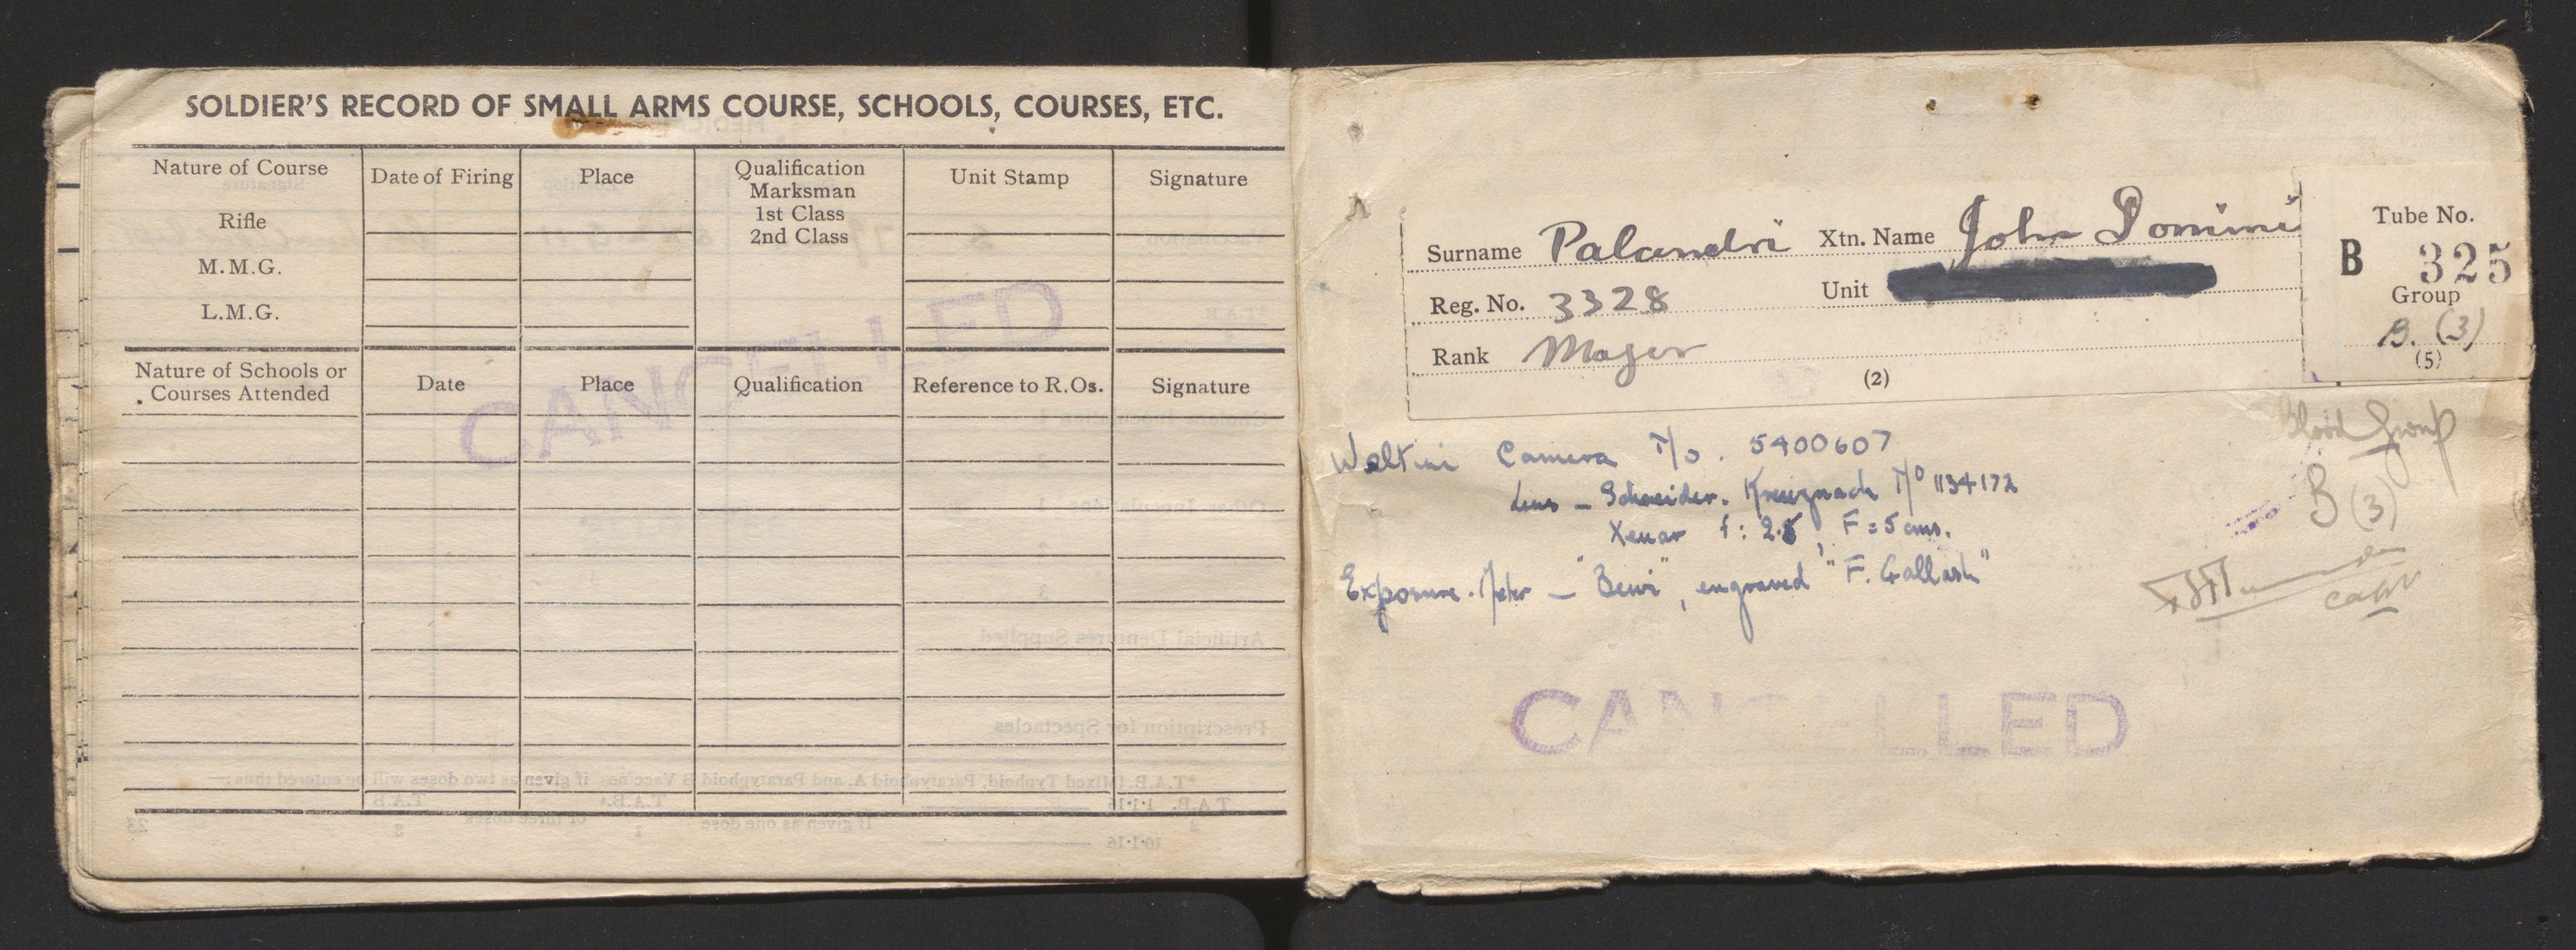 SOLDIER'S RECORD OF SMALL ARMS COURSE, SCHOOLS, COURSES, ETC.
Nature of Course Date of Firing Place Qualification Marksman 1st Class 2nd Class Unit Stamp Signature
Rifle
M.M.G.
L.M.G.
Nature of Schools or Courses Attended Date Place Qualification Reference to R.Os. Signature
CANCELLED
Surname Palandri Xtn. Name John Domini
Reg. No. 3328 Unit
Rank Major
(2)
Tube No.
B 325
Group
B. (3)
(5)
Blood Group
B (3)
Capt
Weltini Camera No. 5400607
Lens – Schneider. Kreuznach No 1134172
Xenar f: 2.8, F = 5 cms.
Exposure. Meter – "Bewi", engraved "F. Gallash"
CANCELLED